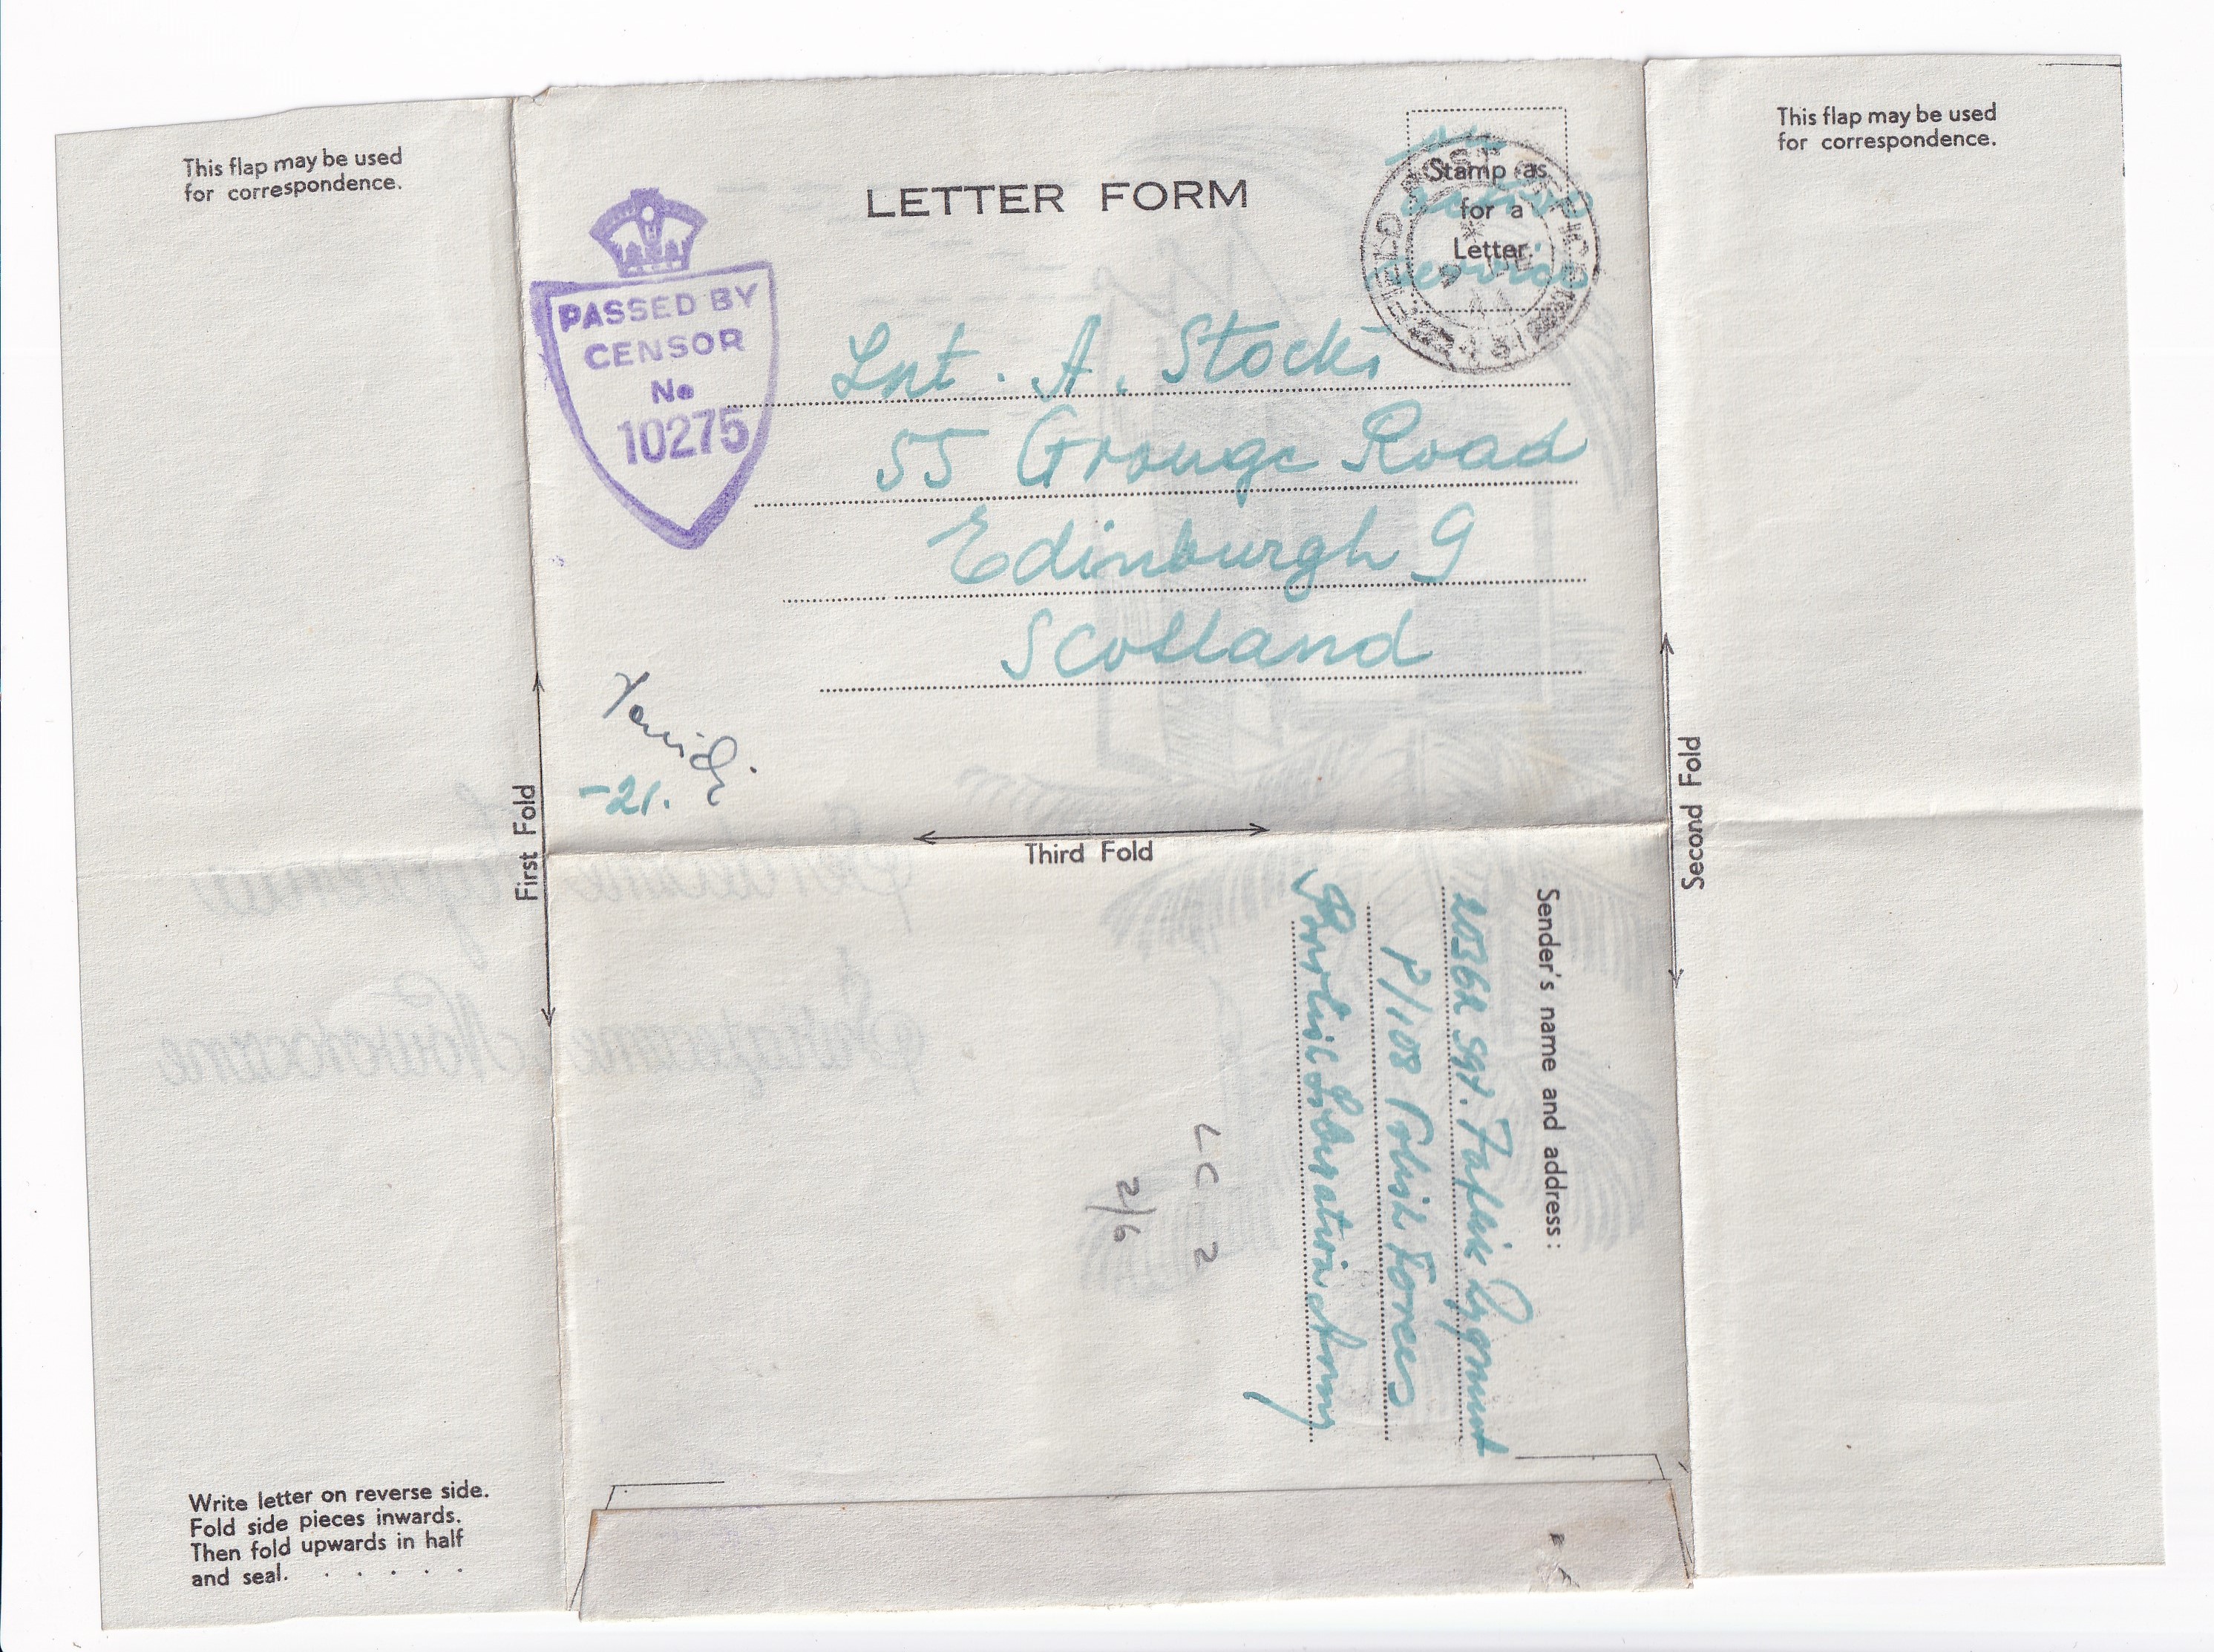 This flap may be used
for correspondence.
LETTER FORM
on
active
service
Stamp as
for a
Letter.
FIELD POST OFFICE
9 DE
44
This flap may be used
for correspondence.
PASSED BY
CENSOR
No
10275
Lnt. A. Stocki
55 Grange Road
Edinburgh 9
Scotland
-21.
First Fold
Third Fold
Second Fold
Sender's name and address:
Sgt.
P/108 Polish Forces
British Liberation Army
LC 2
2/6
Write letter on reverse side.
Fold side pieces inwards.
Then fold upwards in half
and seal. . . . . .